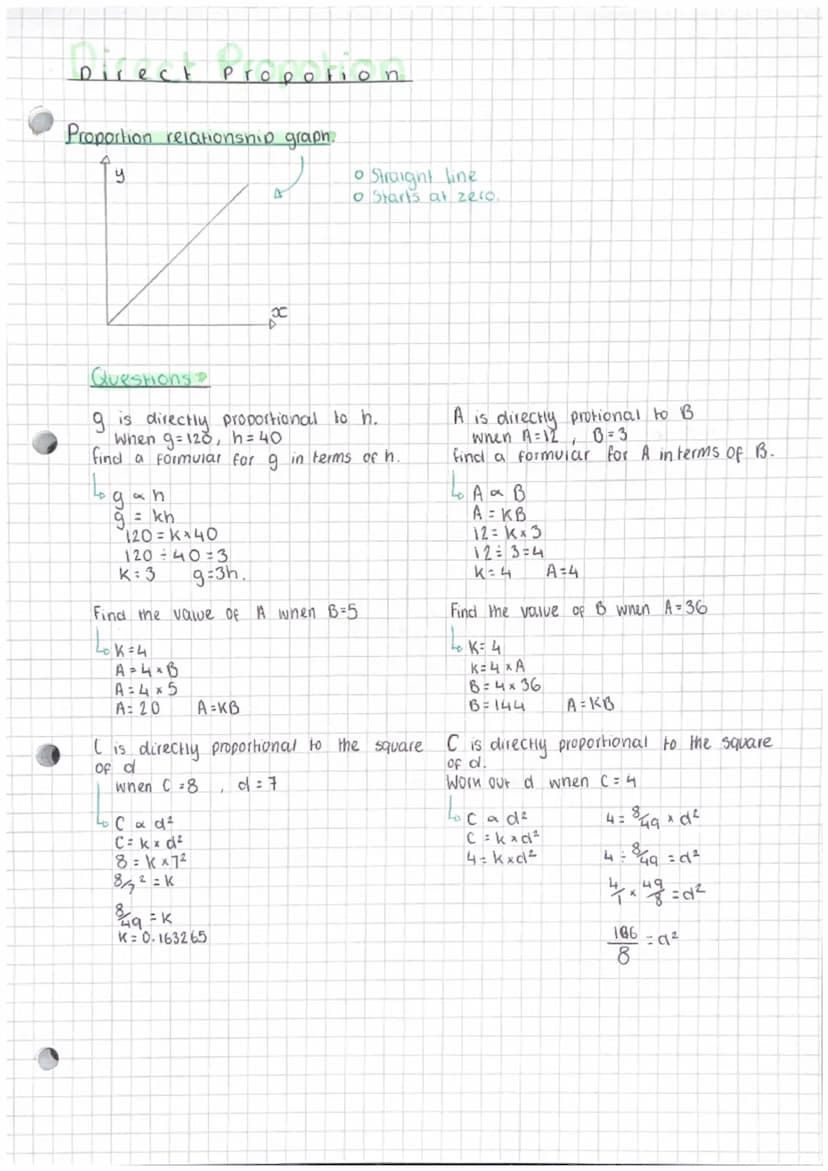 Direct Propotion
Proportion relationship graph:
y
o Straight line
o Starts at zero.
x
Questions:
g is directly proportional to h.
When g=120, h=40
find a formular for g in terms of h.
g ∝ h
g = kh
120 = k×40
120 ÷ 40 = 3
k = 3 g=3h.
A is directly protional to B
when A=12, B=3
find a formular for A in terms of B.
A ∝ B
A = KB
12 = k×3
12 ÷ 3=4
k=4 A=4
Find the value of A when B=5
K=4
A=4×B
A=4×5
A=20 A=KB
Find the value of B when A=36
K=4
K=4×A
B=4×36
B=144 A=KB
C is directly proportional to the square
of d
when C=8, d=7
C ∝ d²
C=k×d²
8=k×7²
8/7²=k
8/49=k
k=0.163265
C is directly proportional to the square
of d.
Work out d when C=4
C ∝ d²
C=k×d²
4=k×d²
4=8/49×d²
4÷8/49=d²
4/1×49/8=d²
/8=d²